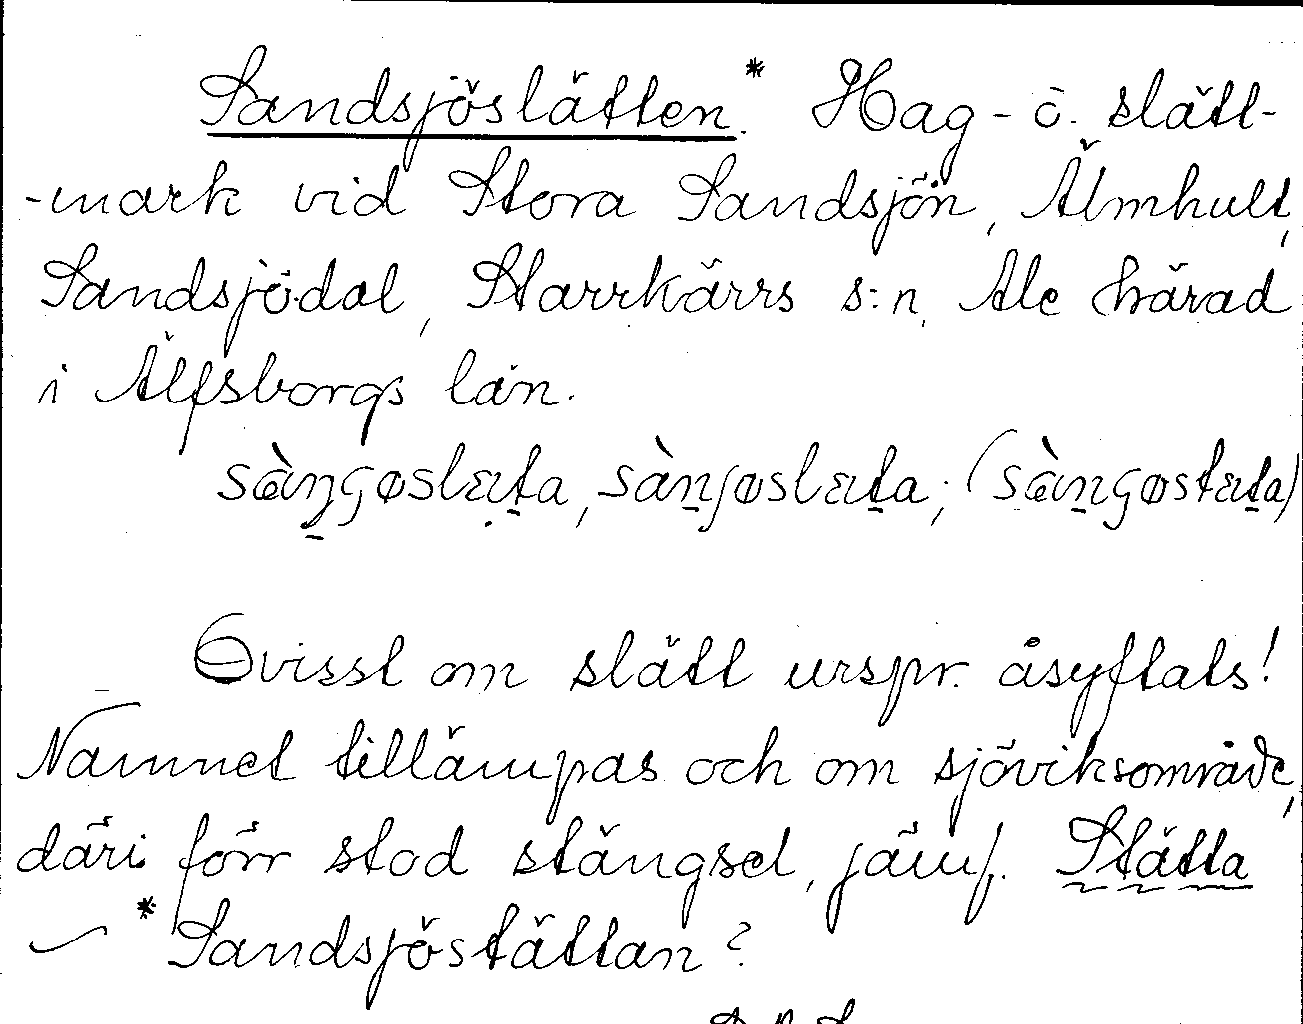 Sandsjöslätten.* Hag- o. slätt-
-mark vid Stora Sandsjön, Älmhult,
Sandsjödal, Starrkärrs s:n, Ale härad
i Älfsborgs län.
Ovisst om slätt urspr. åsyftats!
Namnet tillämpas och om sjöviksområde,
däri förr stod stängsel, jämf. Stätta
* Sandsjöstättan?